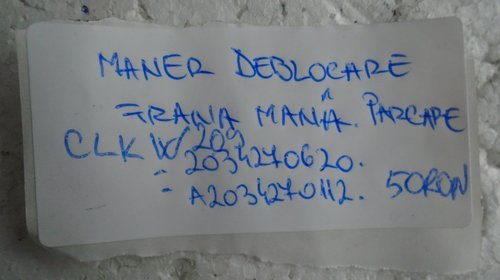 MANER DEBLOCARE
FRANA MANĂ. PARCARE
CLK W 209
2034270620.
= A2034270112. 50RON